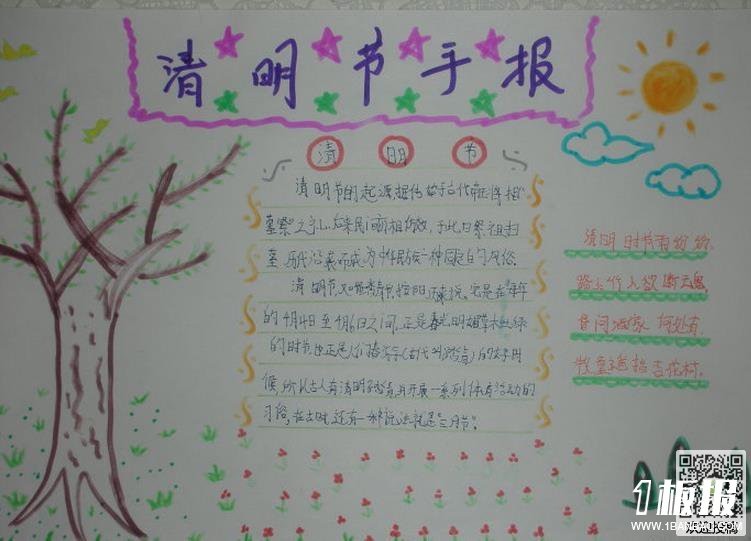 清明节手报
清明节
清明节的起源据传始于古代帝王将相"
墓祭"之礼,后来民间亦相仿效,于此日祭祖扫
墓,历代沿袭而成为中华民族一种固定的风俗
清明节,又叫踏青节,按阳历来说,它是在每年
的4月4日至4月6日之间,正是春光明媚草木吐绿
的时节,也正是人们踏春游(古代叫踏青)的好时
候,所以古人有清明踏青,并开展一系列体育活动的
习俗,在古时,还有一种说法就是"三月节"。
清明时节雨纷纷,
路上行人欲断魂
借问酒家何处有
牧童遥指杏花村.
1板报
WWW.1BANBAO.COM
欢迎投稿